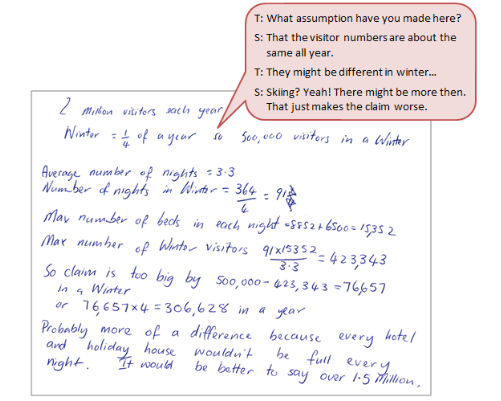 T: What assumption have you made here?
S: That the visitor numbers are about the
same all year.
T: They might be different in winter...
S: Skiing? Yeah! There might be more then.
That just makes the claim worse.
2 million visitors each year
Winter = 1/4 of a year so 500,000 visitors in a Winter
Average number of nights = 3.3
Number of nights in Winter = 364/4 = 91
Max number of beds in each night = 8852 + 6500 = 15,352
Max number of Winter visitors 91 x 15352 / 3.3 = 423,343
So claim is too big by 500,000 - 423,343 = 76,657
in a Winter
or 76,657 x 4 = 306,628 in a year
Probably more of a difference because every hotel
and holiday house wouldn't be full every
night. It would be better to say over 1.5 million.